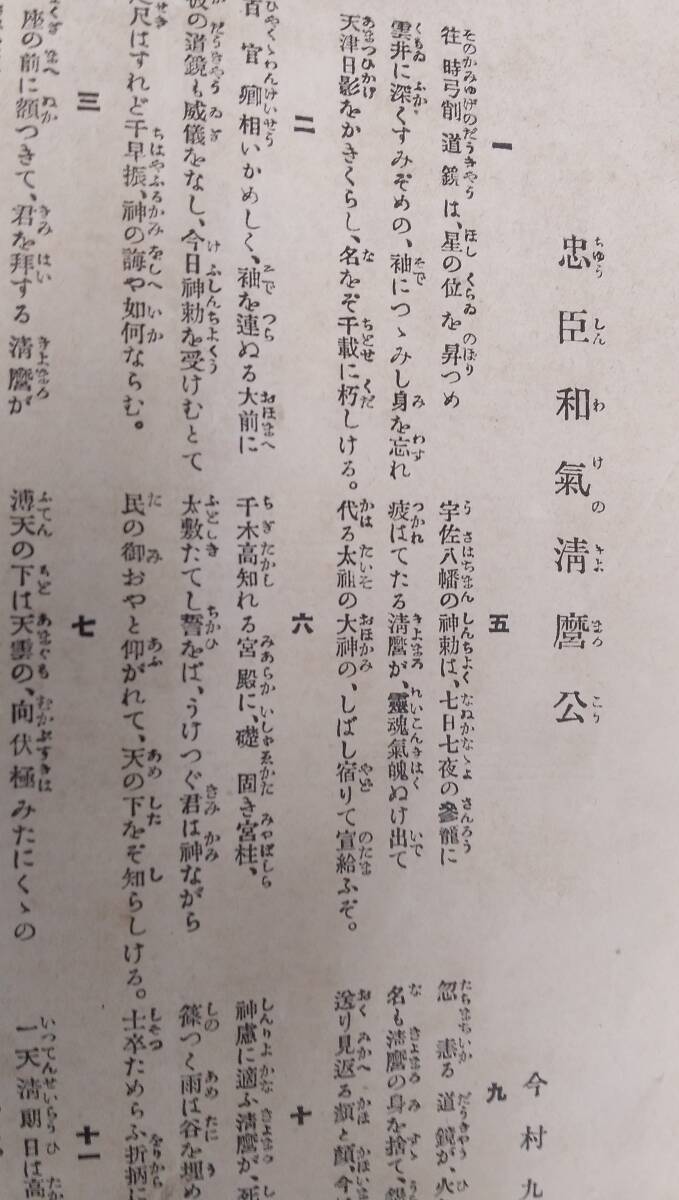 忠臣和氣淸麿公
今村九
一
往時弓削道鏡は、星の位を昇つめ
雲井に深くすみぞめの、袖につゝみし身を忘れ
天津日影をかきくらし、名をぞ千載に朽しける。
二
百官卿相いかめしく、袖を連ぬる大前に
彼の道鏡も威儀をなし、今日神勅を受けむとて
尺はすれど千早振、神の誨や如何ならむ。
三
座の前に額つきて、君を拜する淸麿が
五
宇佐八幡の神勅は、七日七夜の參籠に
疲はてたる淸麿が、靈魂氣魄ぬけ出て
代る太祖の大神の、しばし宿りて宣給ふぞ。
六
千木高知れる宮殿に、礎固き宮柱、
太敷たてし誓をば、うけつぐ君は神ながら
民の御おやと仰がれて、天の下をぞ知らしける。
七
溥天の下は天雲の、向伏極みたにくゝの
九
忽恚る道鏡が、火
名も淸麿の身を捨て、
送り見返る顏と顏、今
十
神慮に適ふ淸麿が、死
篠つく雨は谷を埋め
士卒ためらふ折柄に
十一
一天淸朗日は高